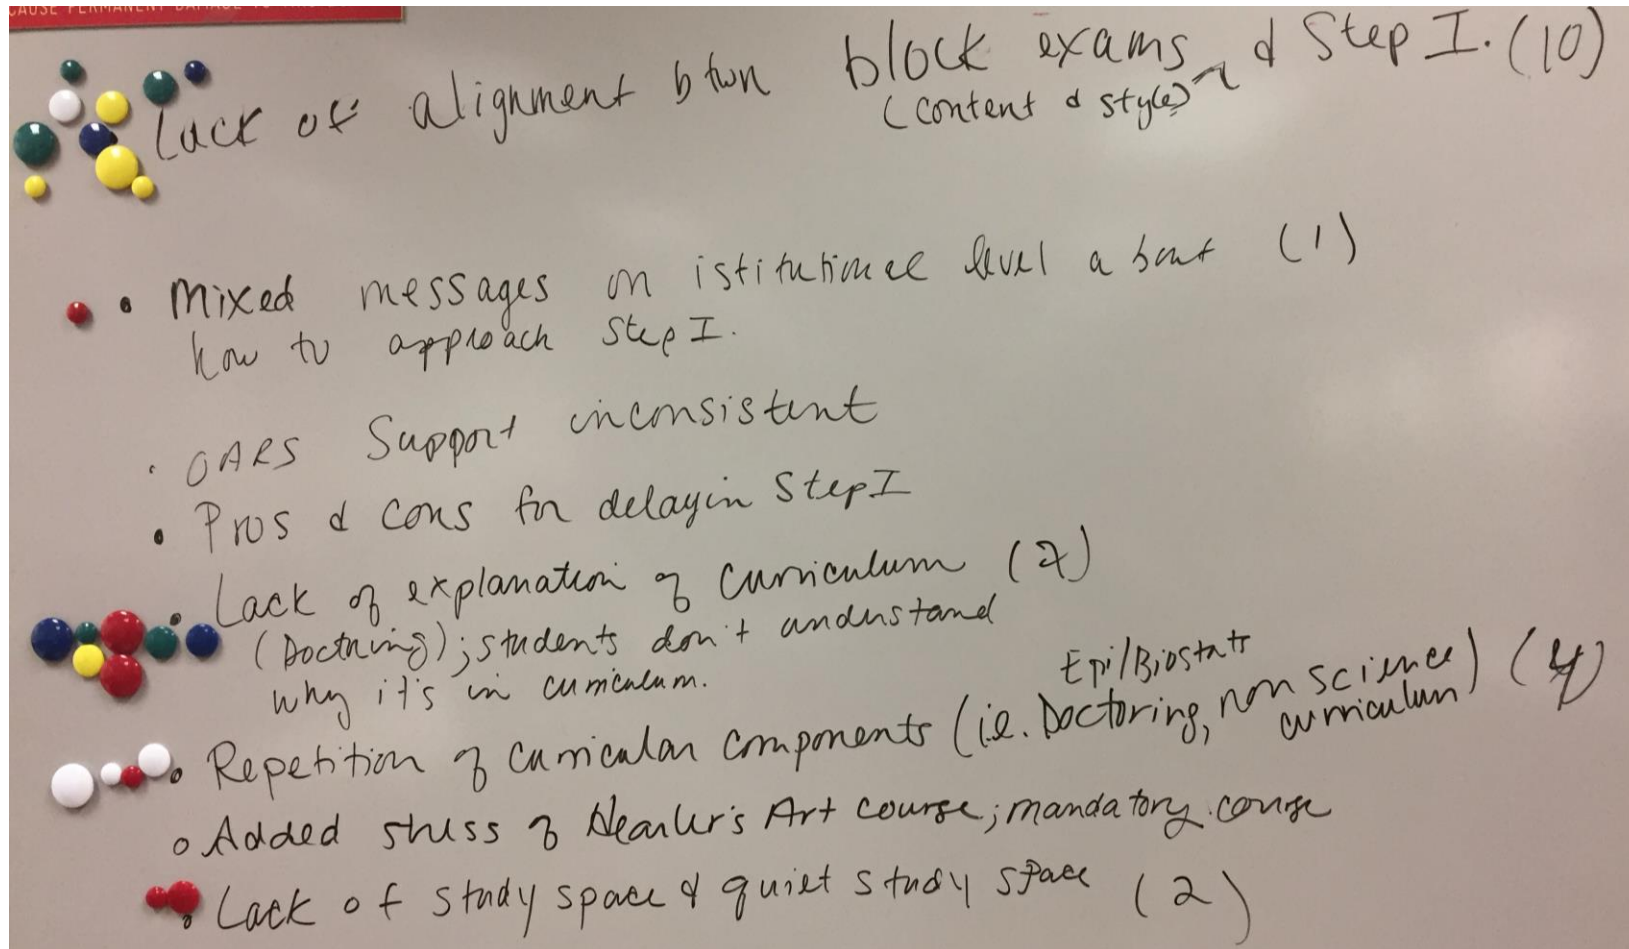 CAUSE PERMANENT DAMAGE TO
Lack of alignment btwn block exams & Step I. (10)
(content & style)
• Mixed messages on istitutional level about (1)
how to approach Step I.
• OARS Support inconsistent
• Pros & cons for delayin Step I
• Lack of explanation of curriculum (7)
(Doctring); students don't understand
why it's in curriculum.
Epi/Biostats
• Repetition of curricular components (i.e. Doctoring, non science) (4)
curriculum
• Added stress of Healer's Art course; mandatory course
• Lack of study space & quiet study space (2)